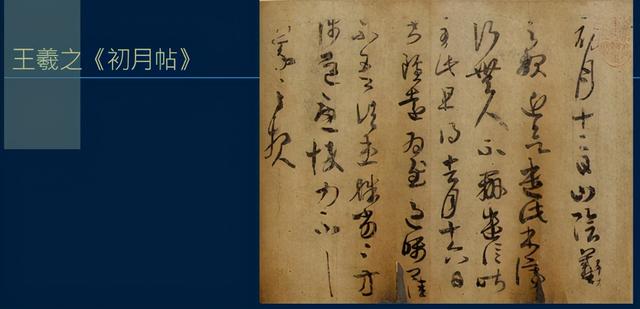 王羲之《初月帖》
初月十二日山陰羲
之報近欲遣此書停
行無人不辦遣信昨
至此且得去月十六日
書雖遠為慰過囑
不吾諸患殊劣〻方
涉道憂悴力不
羲之報